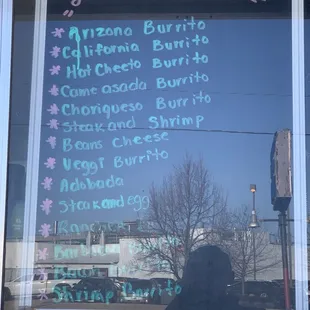 Arizona Burrito
California Burrito
Hot Cheeto Burrito
Carne asada Burrito
Choriqueso Burrito
Steak and Shrimp
Beans cheese
Veggi Burrito
Adobada
Steak and egg
Ranchero
Barbacoa
Bacon
Shrimp Burrito